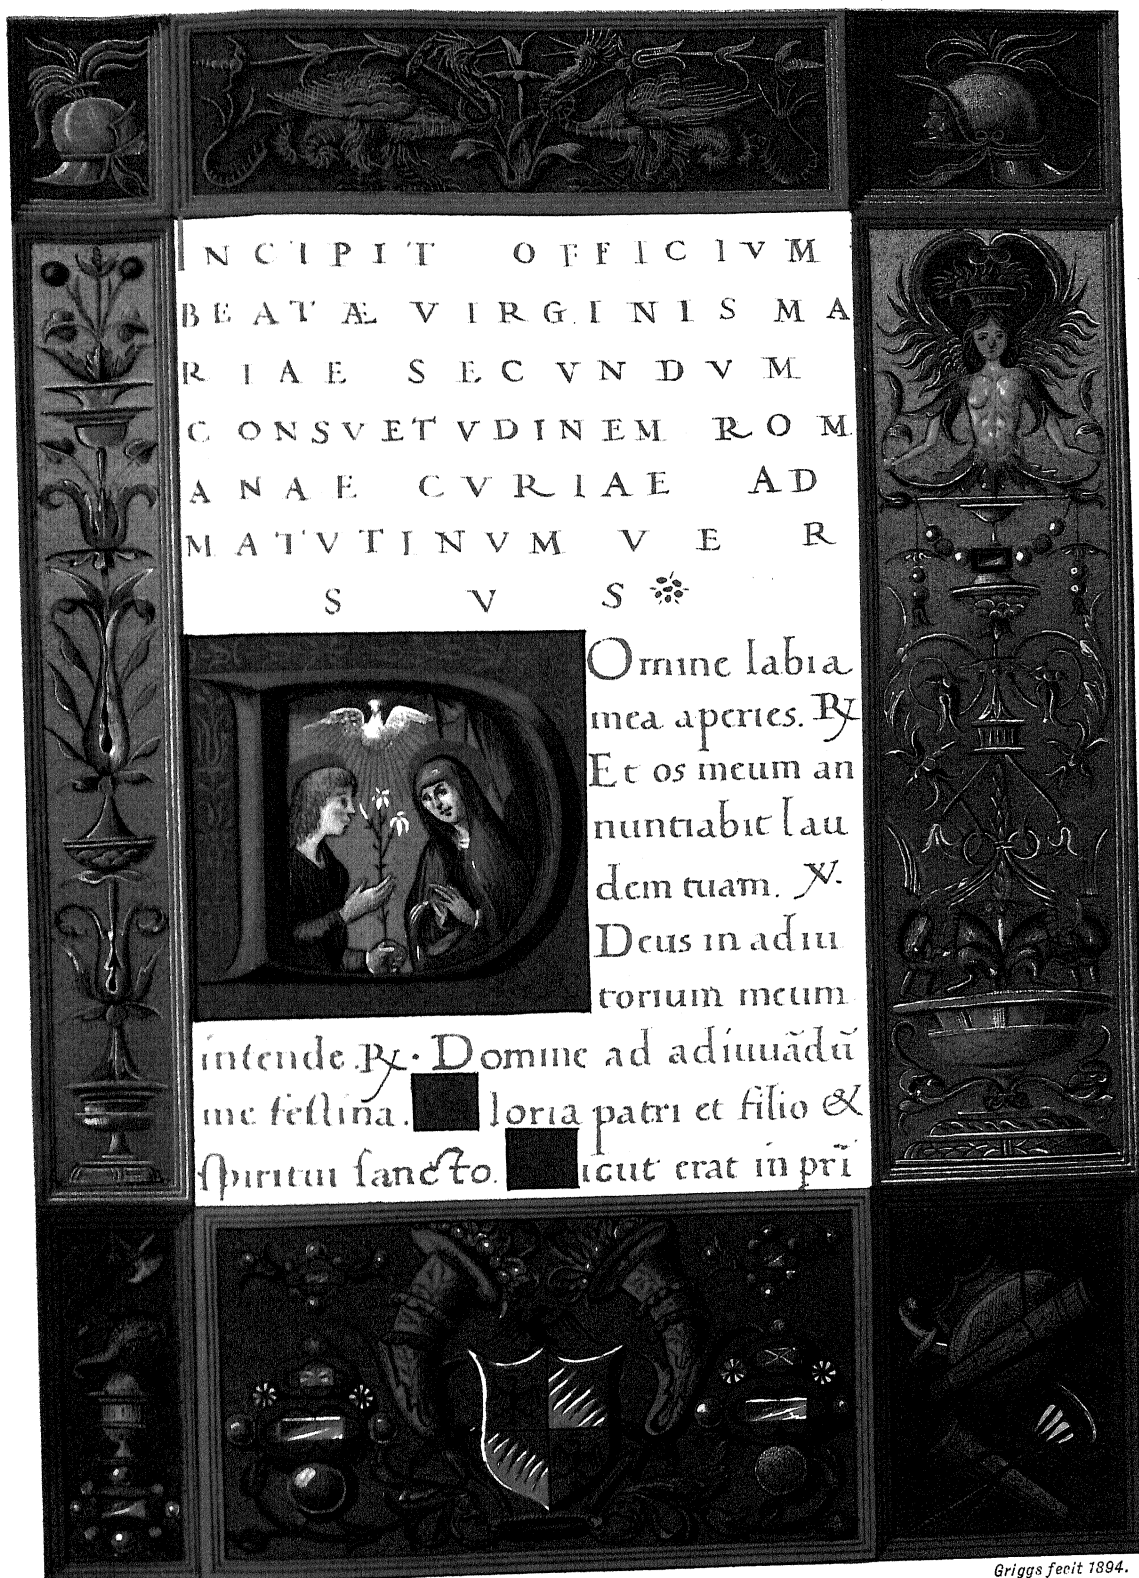 INCIPIT OFFICIVM
BEATÆ VIRGINIS MA
RIAE SECVNDVM
CONSVETVDINEM ROM
ANAE CVRIAE AD
MATVTINVM VER
SVS
DOmine labia
mea aperies. ℟
Et os meum an
nuntiabit lau
dem tuam. ℣.
Deus in adiu
torium meum
intende. ℟. Domine ad adiuuãdũ
me festina. loria patri et filio &
spiritui sancto. icut erat in prĩ
Griggs fecit 1894.